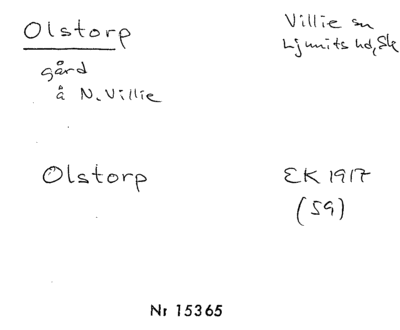 Olstorp
Villie sn
Ljunits hd, Sk
gård
å N. Villie
Olstorp
EK 1917
(59)
Nr 15365